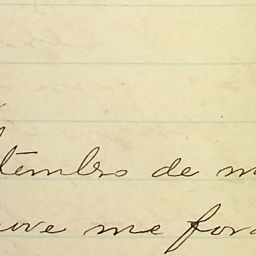 tembro de m
ove me for